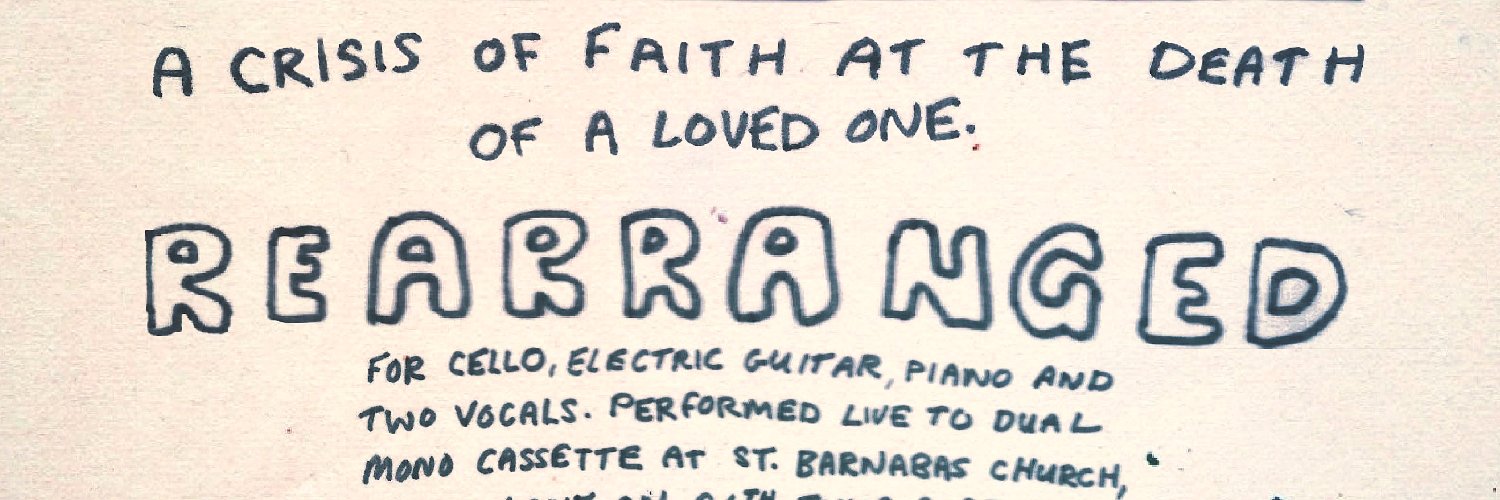 A CRISIS OF FAITH AT THE DEATH
OF A LOVED ONE.
REARRANGED
FOR CELLO, ELECTRIC GUITAR, PIANO AND
TWO VOCALS. PERFORMED LIVE TO DUAL
MONO CASSETTE AT ST. BARNABAS CHURCH,